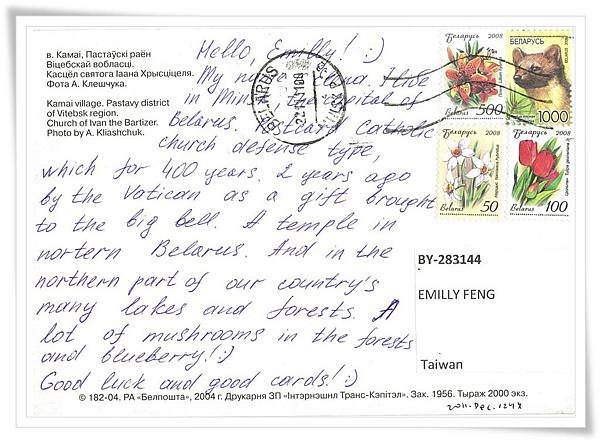 в. Камаі, Пастаўскі раён
Віцебскай вобласці.
Касцёл святога Іаана Хрысціцеля.
Фота А. Клешчука.
Kamai village. Pastavy district
of Vitebsk region.
Church of Ivan the Bartizer.
Photo by A. Kliashchuk.
Hello, Emilly! :)
My name I live
in Minsk, the capital of
Belarus. Postcard Catholic
church defense type,
which for 400 years. 2 years ago
by the Vatican as a gift brought
to the big bell. A temple in
nortern Belarus. And in the
northern part of our country's
many lakes and forests. A
lot of mushrooms in the forests
and blueberry! :)
Good luck and good cards! :)
Беларусь 2008
Belarus 500
БЕЛАРУСЬ
1000
Беларусь 2008
Belarus 50
Беларусь 2008
Belarus 100
BELARUS
BY-283144
EMILLY FENG
Taiwan
© 182-04. РА «Белпошта», 2004 г. Друкарня ЗП «Інтэрнэшнл Транс-Кэпітэл». Зак. 1956. Тыраж 2000 экз.
2011. Dec. 12